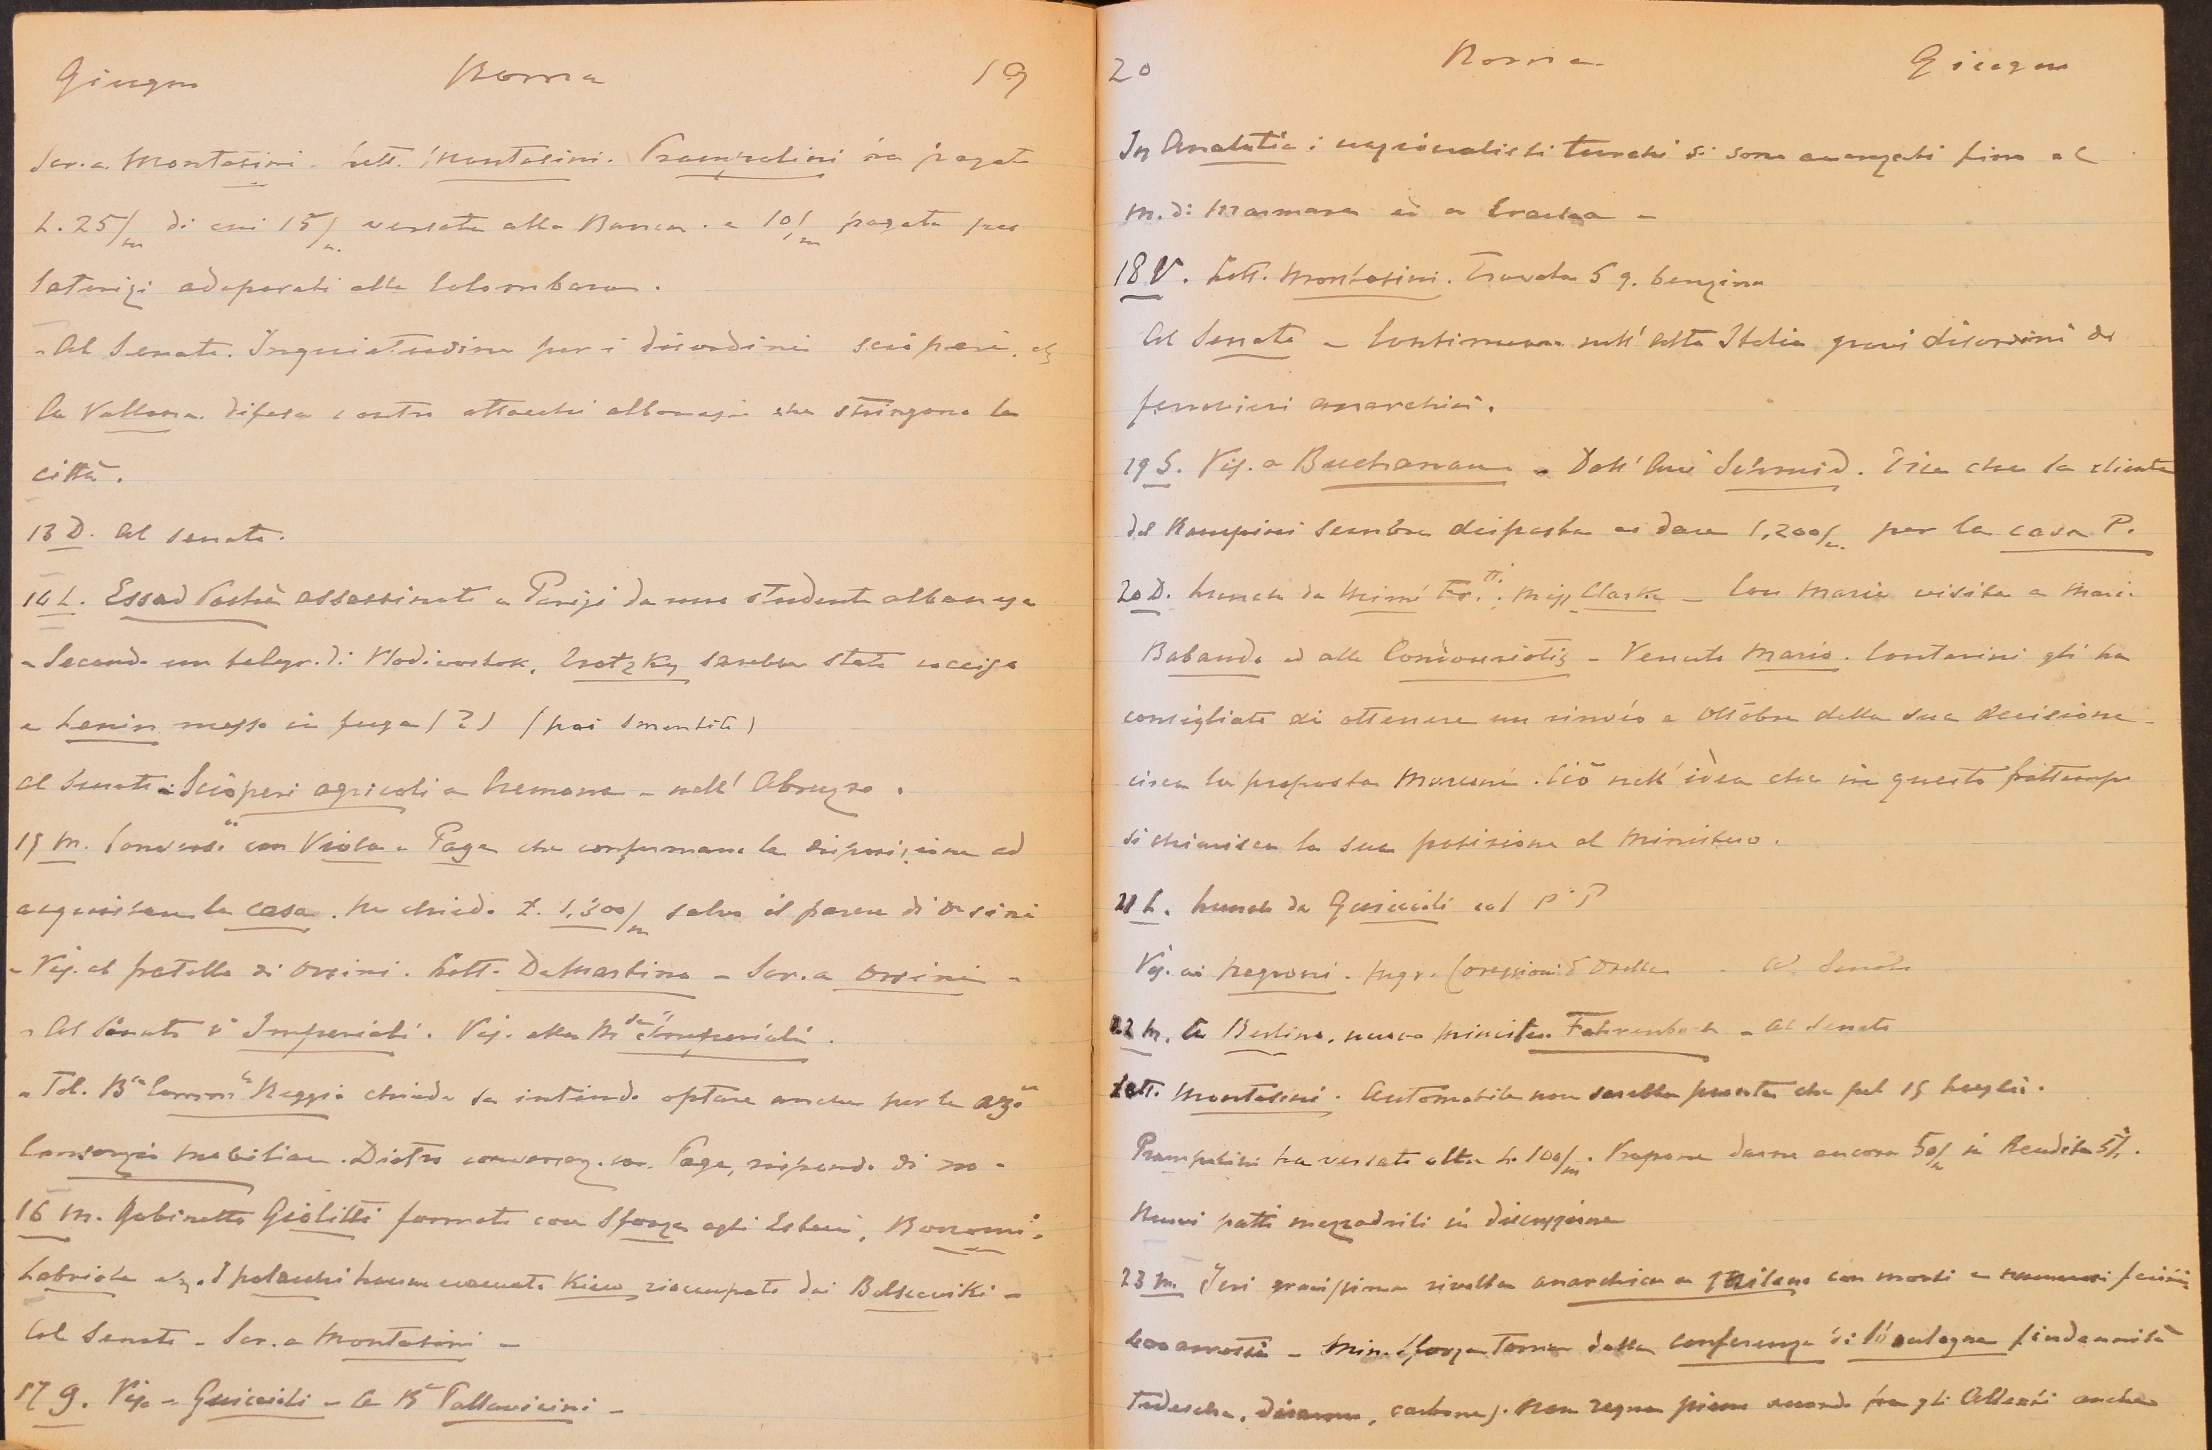 Giugno Roma 19
Scr. a Montasini. Lett. Montasini. Prampolini ha pagato
L. 25/m di cui 15/m versate alla Banca. e 10/m pagate per
laterizi adoperati alla Colombara.
- Al Senato. Inquietudine per i disordini scioperi, etc
La Vallona difesa contro attacchi albanesi che stringono la
città.
13 D. Al Senato.
14 L. Essad Pachà assassinato a Parigi da uno studente albanese
- Secondo un telegr. di Wladivostok, Trotzky sarebbe stato ucciso
e Lenin messo in fuga (?) (poi smentito)
Al Senato - Scioperi agricoli a Cremona - nell' Abruzzo.
15 M. Convers.ni con Viola e Paga che confermano la disposizione ad
acquistare la casa. Ne chiedo L. 1,300/m salvo il parere di Orsini
- Vis. al fratello di Orsini. Lett. DeMartino - Scr. a Orsini -
- Al Senato v° Imperiali. Vis. alla M.sa Imperiali.
- Tel. B.ca Comm.le Reggio chiede se intendo optare anche per le az.ni
Consorzio mobiliare. Dietro conversaz. con Paga, rispondo di no -
16 M. Gabinetto Giolitti formato con Sforza agli Esteri, Bonomi,
Labriola etc. I polacchi hanno evacuato Kiew rioccupato dai Bolsceviki -
Al Senato - Scr. a Montasini -
17 G. Vis. a Guiccioli - a B Pallavicini -
20 Roma. Giugno
In Anatolia i nazionalisti turchi si sono avanzati fino al
M. di Marmara ed a Eraclea -
18 V. Lett. Montasini. Trovata 5 q. benzina
Al Senato - Continuano nell' alta Italia gravi disordini di
ferrovieri anarchici.
19 S. Vis. a Buchanan - Dall' Schmid. Dice che la cliente
del Rampini sembra disposta a dare 1,200/m per la casa P.
20 D. Lunch da Mimì Miss Clarke - Con Maria visita a Mari.
Babando ed alla Condouriotis - Venuto Mario. Contarini gli ha
consigliato di ottenere un rinvio a ottobre della sua decisione
circa la proposta Marconi. Ciò nell' idea che in questo frattempo
si chiarisca la sua posizione al Ministero.
21 L. Lunch da Guiccioli col P P
Vis. ai Negroni - Al Senato
22 M. A Berlino, nuovo ministero Fehrenbach - Al Senato
Lett. Montasini. Automobile non sarebbe pronta che pel 15 luglio.
Prampolini ha versato altre L. 100/m. Propone darne ancora 50/m in Rendita 5%.
Nuovi patti mezzadrili in discussione
23 M. Ieri gravissima rivolta anarchica a Milano con morti e numerosi feriti
400 arresti - Min. Sforza torna dalla conferenza di Boulogne (indennità
tedesche, disarmo, carbone). Non regna pieno accordo fra gli Alleati anche